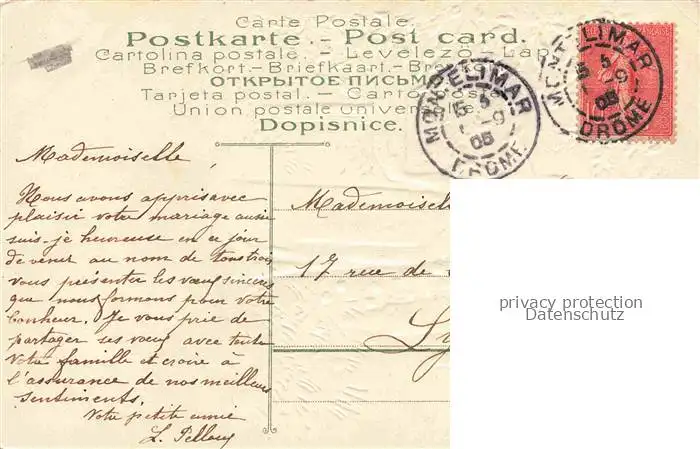 Carte Postale.
Postkarte.- Post card.
Cartolina postale. - Levelező-Lap
Brefkort.-Briefkaart.-Bre
ОТКРЫТОЕ ПИСЬМО
Tarjeta postal. - Cartão posta
Union postale universelle.
Dopisnice.
MONTELIMAR
5
9
05
DROME
MONTELIMAR
5
9
05
DROME
Mademoiselle
Nous avons appris avec
plaisir votre mariage aussi
suis-je heureuse en ce jour
de venir au nom de tous trois
vous présenter les vœux sincères
que nous formons pour votre
bonheur. Je vous prie de
partager ses vœux avec toute
votre famille et croire à
l'assurance de nos meilleurs
sentiments.
Votre petite amie
L. Pelloux
Mademoiselle
17 rue de
Ly
privacy protection
Datenschutz